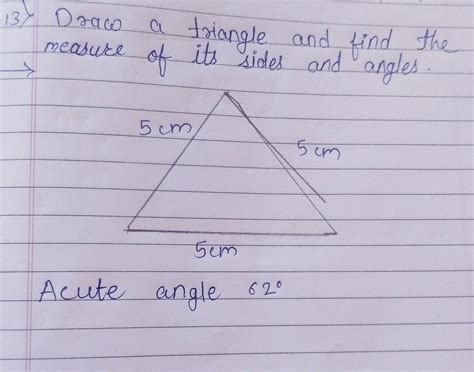 13) Draw a triangle and find the
measure of its sides and angles.
5 cm
5 cm
5cm
Acute angle 62°